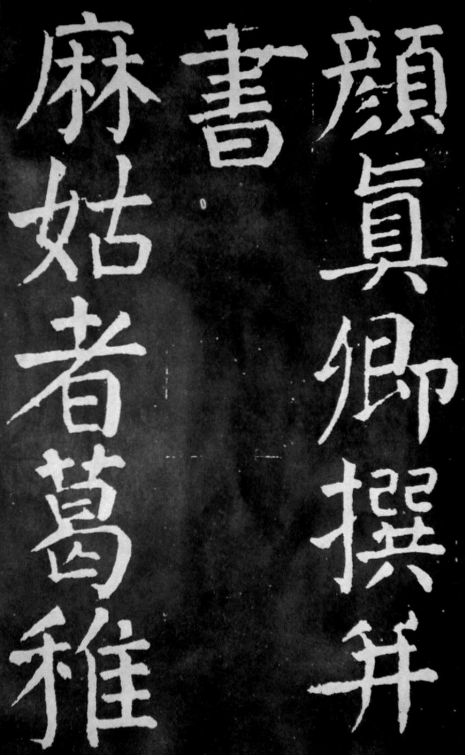 顏眞卿撰并
書
麻姑者葛稚